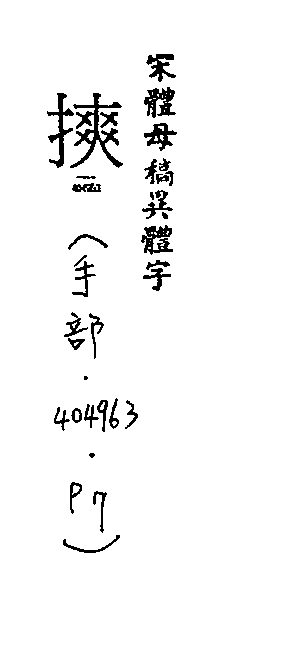 宋體母稿異體字
摤
（手部．404963．P7）